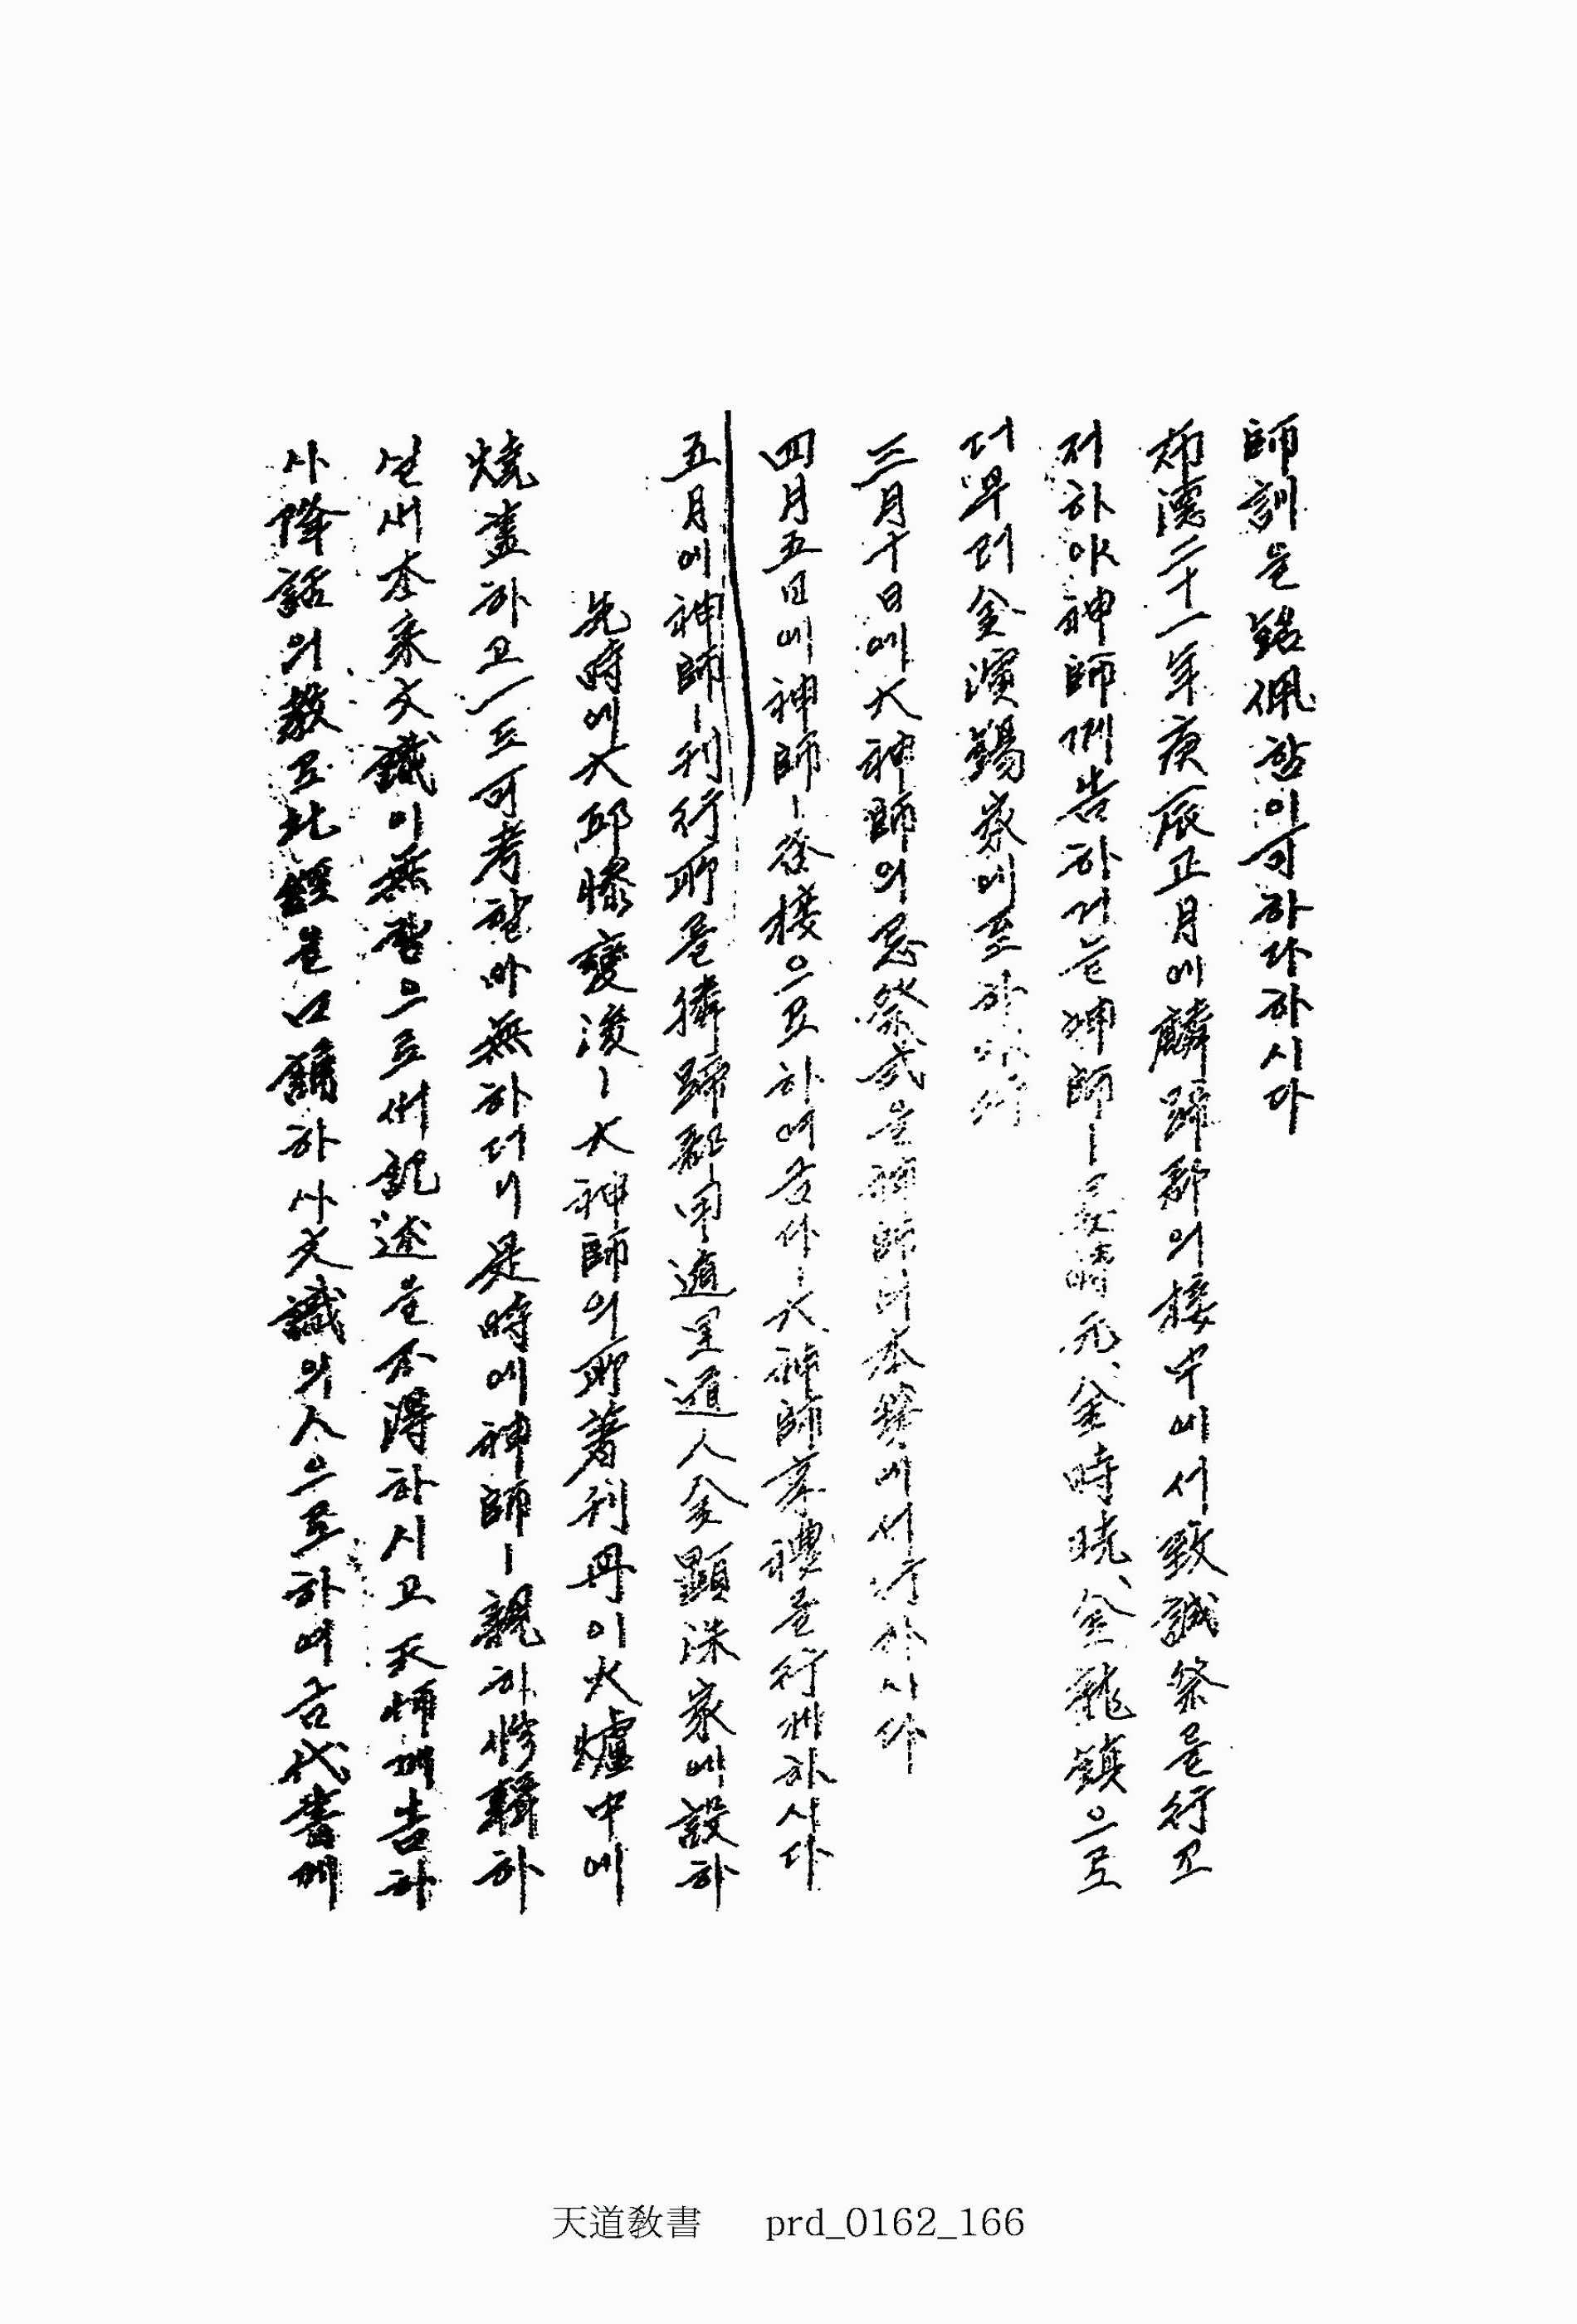 師訓을 銘佩함이 可하다 하시다
布德二十一年庚辰正月에 麟蹄郡의 接中에서 致誠祭를 行코
저하야 神師께 告하거늘 神師ㅣ 時元、金時暁、金龍鎭으로
더부러 全濱錫家에 至하야 行
三月十日에 大神師의 忌祭式을 神師의 本第에서 行하시다
四月五日에 神師ㅣ 各接으로 하여금 大神師 享禮를 行케하시다
五月에 神師ㅣ 刊行所를 獜蹄郡甲遁里道人金顯洙家에 設하
先時에 大邱慘變後ㅣ 大神師의 所著刊冊이 火爐中에
燒盡하고 一도 可考할 바 無하더니 是時에 神師ㅣ 親히 修輯하
실새 本來文識이 無함으로써 記述을 不得하시고 天師께 告하
사 降話의 敎로 此經을 口誦하사 文識의 人으로 하여금 代書케
天道敎書 prd_0162_166